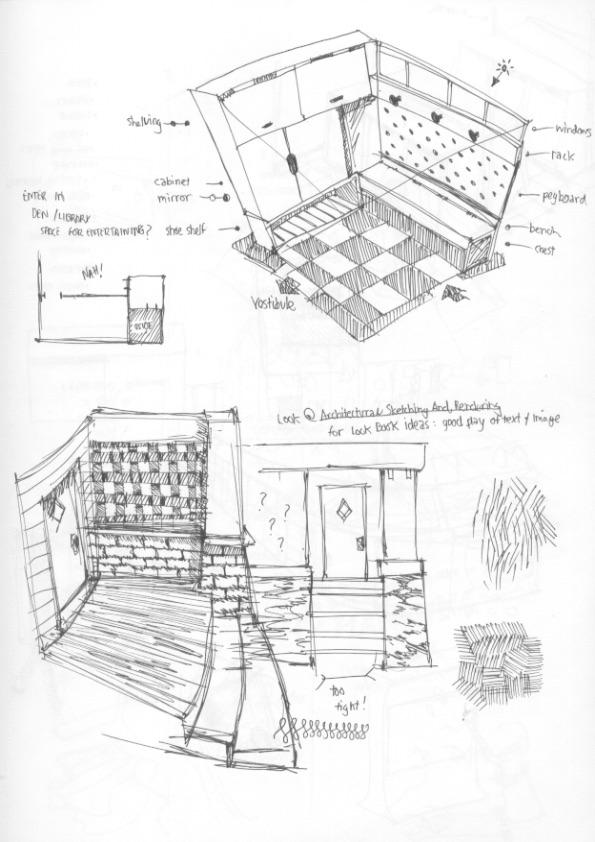 shelving
cabinet
mirror
shoe shelf
windows
rack
pegboard
bench
chest
Vestibule
ENTER IN
DEN/LIBRARY
SPACE FOR ENTERTAINING?
NAH!
Look @ Architectural Sketching And Rendering
for Look Book ideas: good play of text & image
?
?
?
?
too
tight!